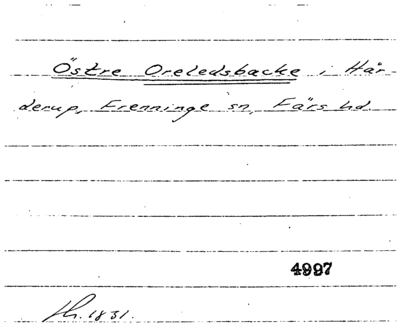 Östre Oreledsbacke i Hår-
derup, Frenninge sn, Färs hd
4997
Th. 1831.